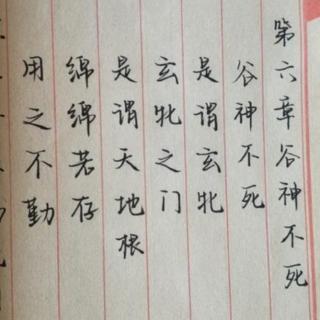 第六章谷神不死
谷神不死
是谓玄牝
玄牝之门
是谓天地根
绵绵若存
用之不勤